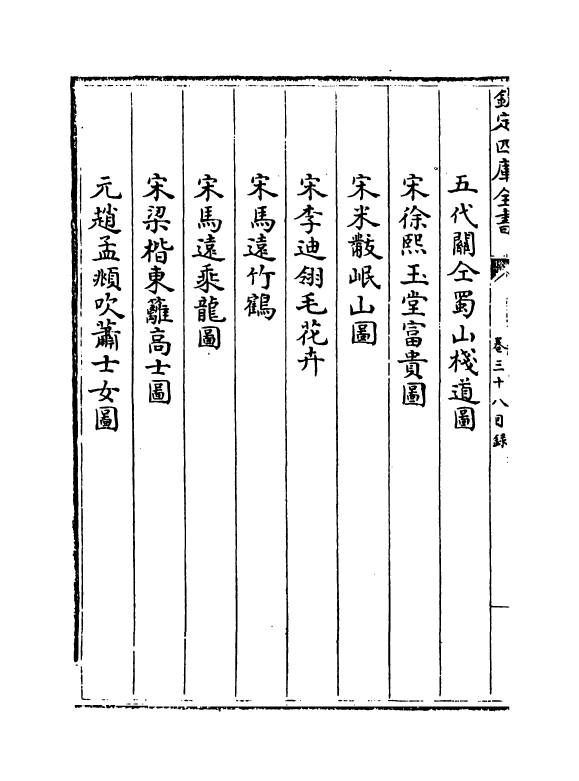 欽定四庫全書
卷三十八目録
五代關仝蜀山棧道圖
宋徐熙玉堂富貴圖
宋米黻岷山圖
宋李迪翎毛花卉
宋馬遠竹鶴
宋馬遠乘龍圖
宋梁楷東籬高士圖
元趙孟頫吹蕭士女圖